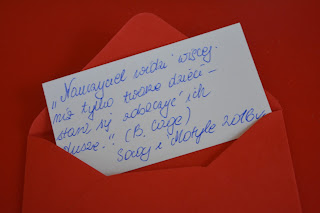 „Nauczyciel widzi więcej
niż tylko twarze dzieci -
stara się zobaczyć ich
dusze." (B. Cage)
Sowy i Motyle 2016r